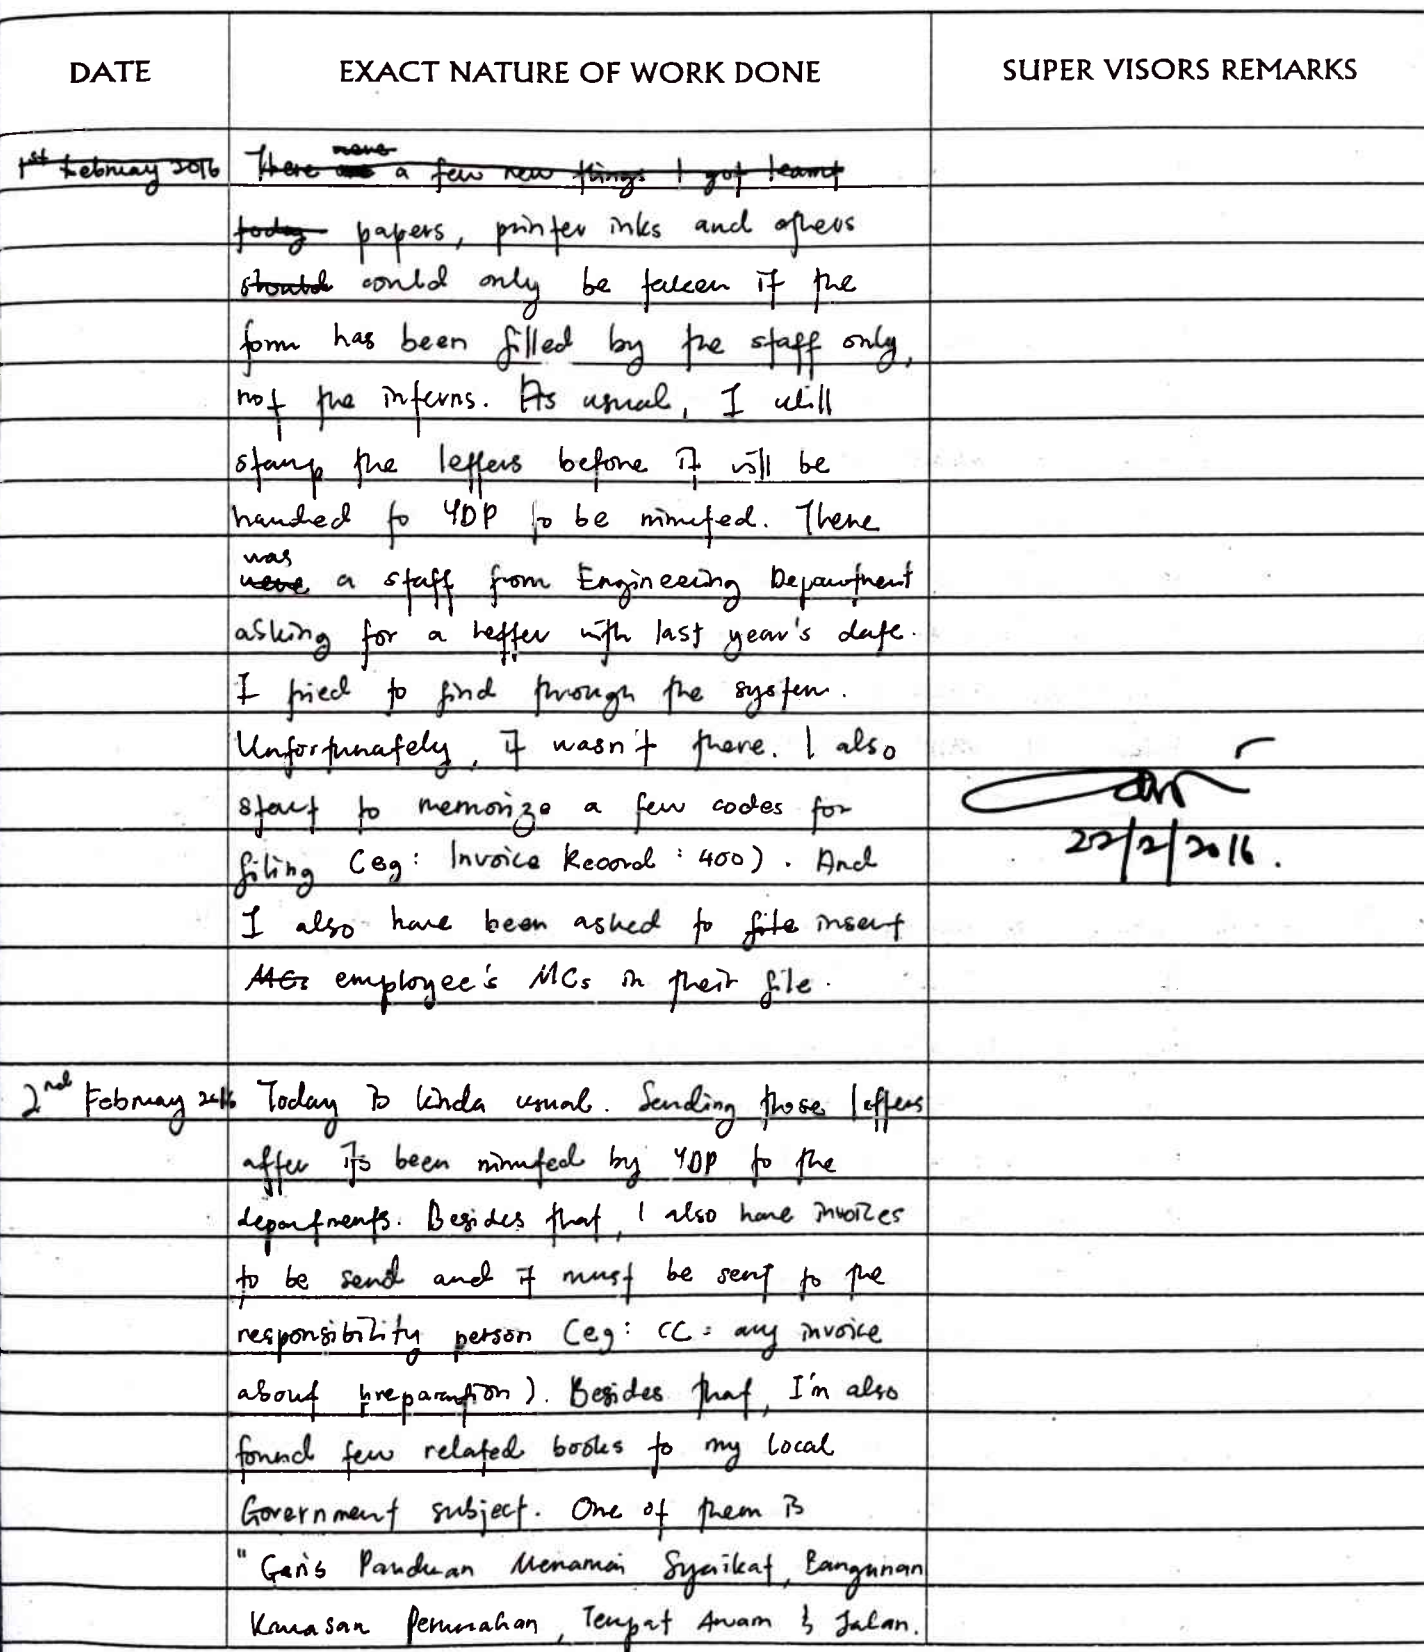 DATE EXACT NATURE OF WORK DONE SUPER VISORS REMARKS
were
1st February 2016 There a few new things I got learnt
today papers, printer inks and others
should could only be taken if the
form has been filled by the staff only,
not the interns. As usual, I will
stamp the letters before it will be
handed to YDP to be minuted. There
was
were a staff from Engineering Department
asking for a letter with last year's date.
I tried to find through the system.
Unfortunately, it wasn't there. I also
start to memorize a few codes for
filing (eg: Invoice Record : 400). And
22/2/2016.
I also have been asked to file insert
MCs employee's MCs in their file.
2nd February 2016 Today is kinda usual. Sending those letters
after its been minuted by YDP to the
departments. Besides that, I also have invoices
to be send and it must be sent to the
responsibility person (eg: CC = any invoice
about preparation). Besides that, I'm also
found few related books to my local
Government subject. One of them is
"Garis Panduan Menamai Syarikat, Bangunan
Kawasan Perumahan, Tempat Awam & Jalan.